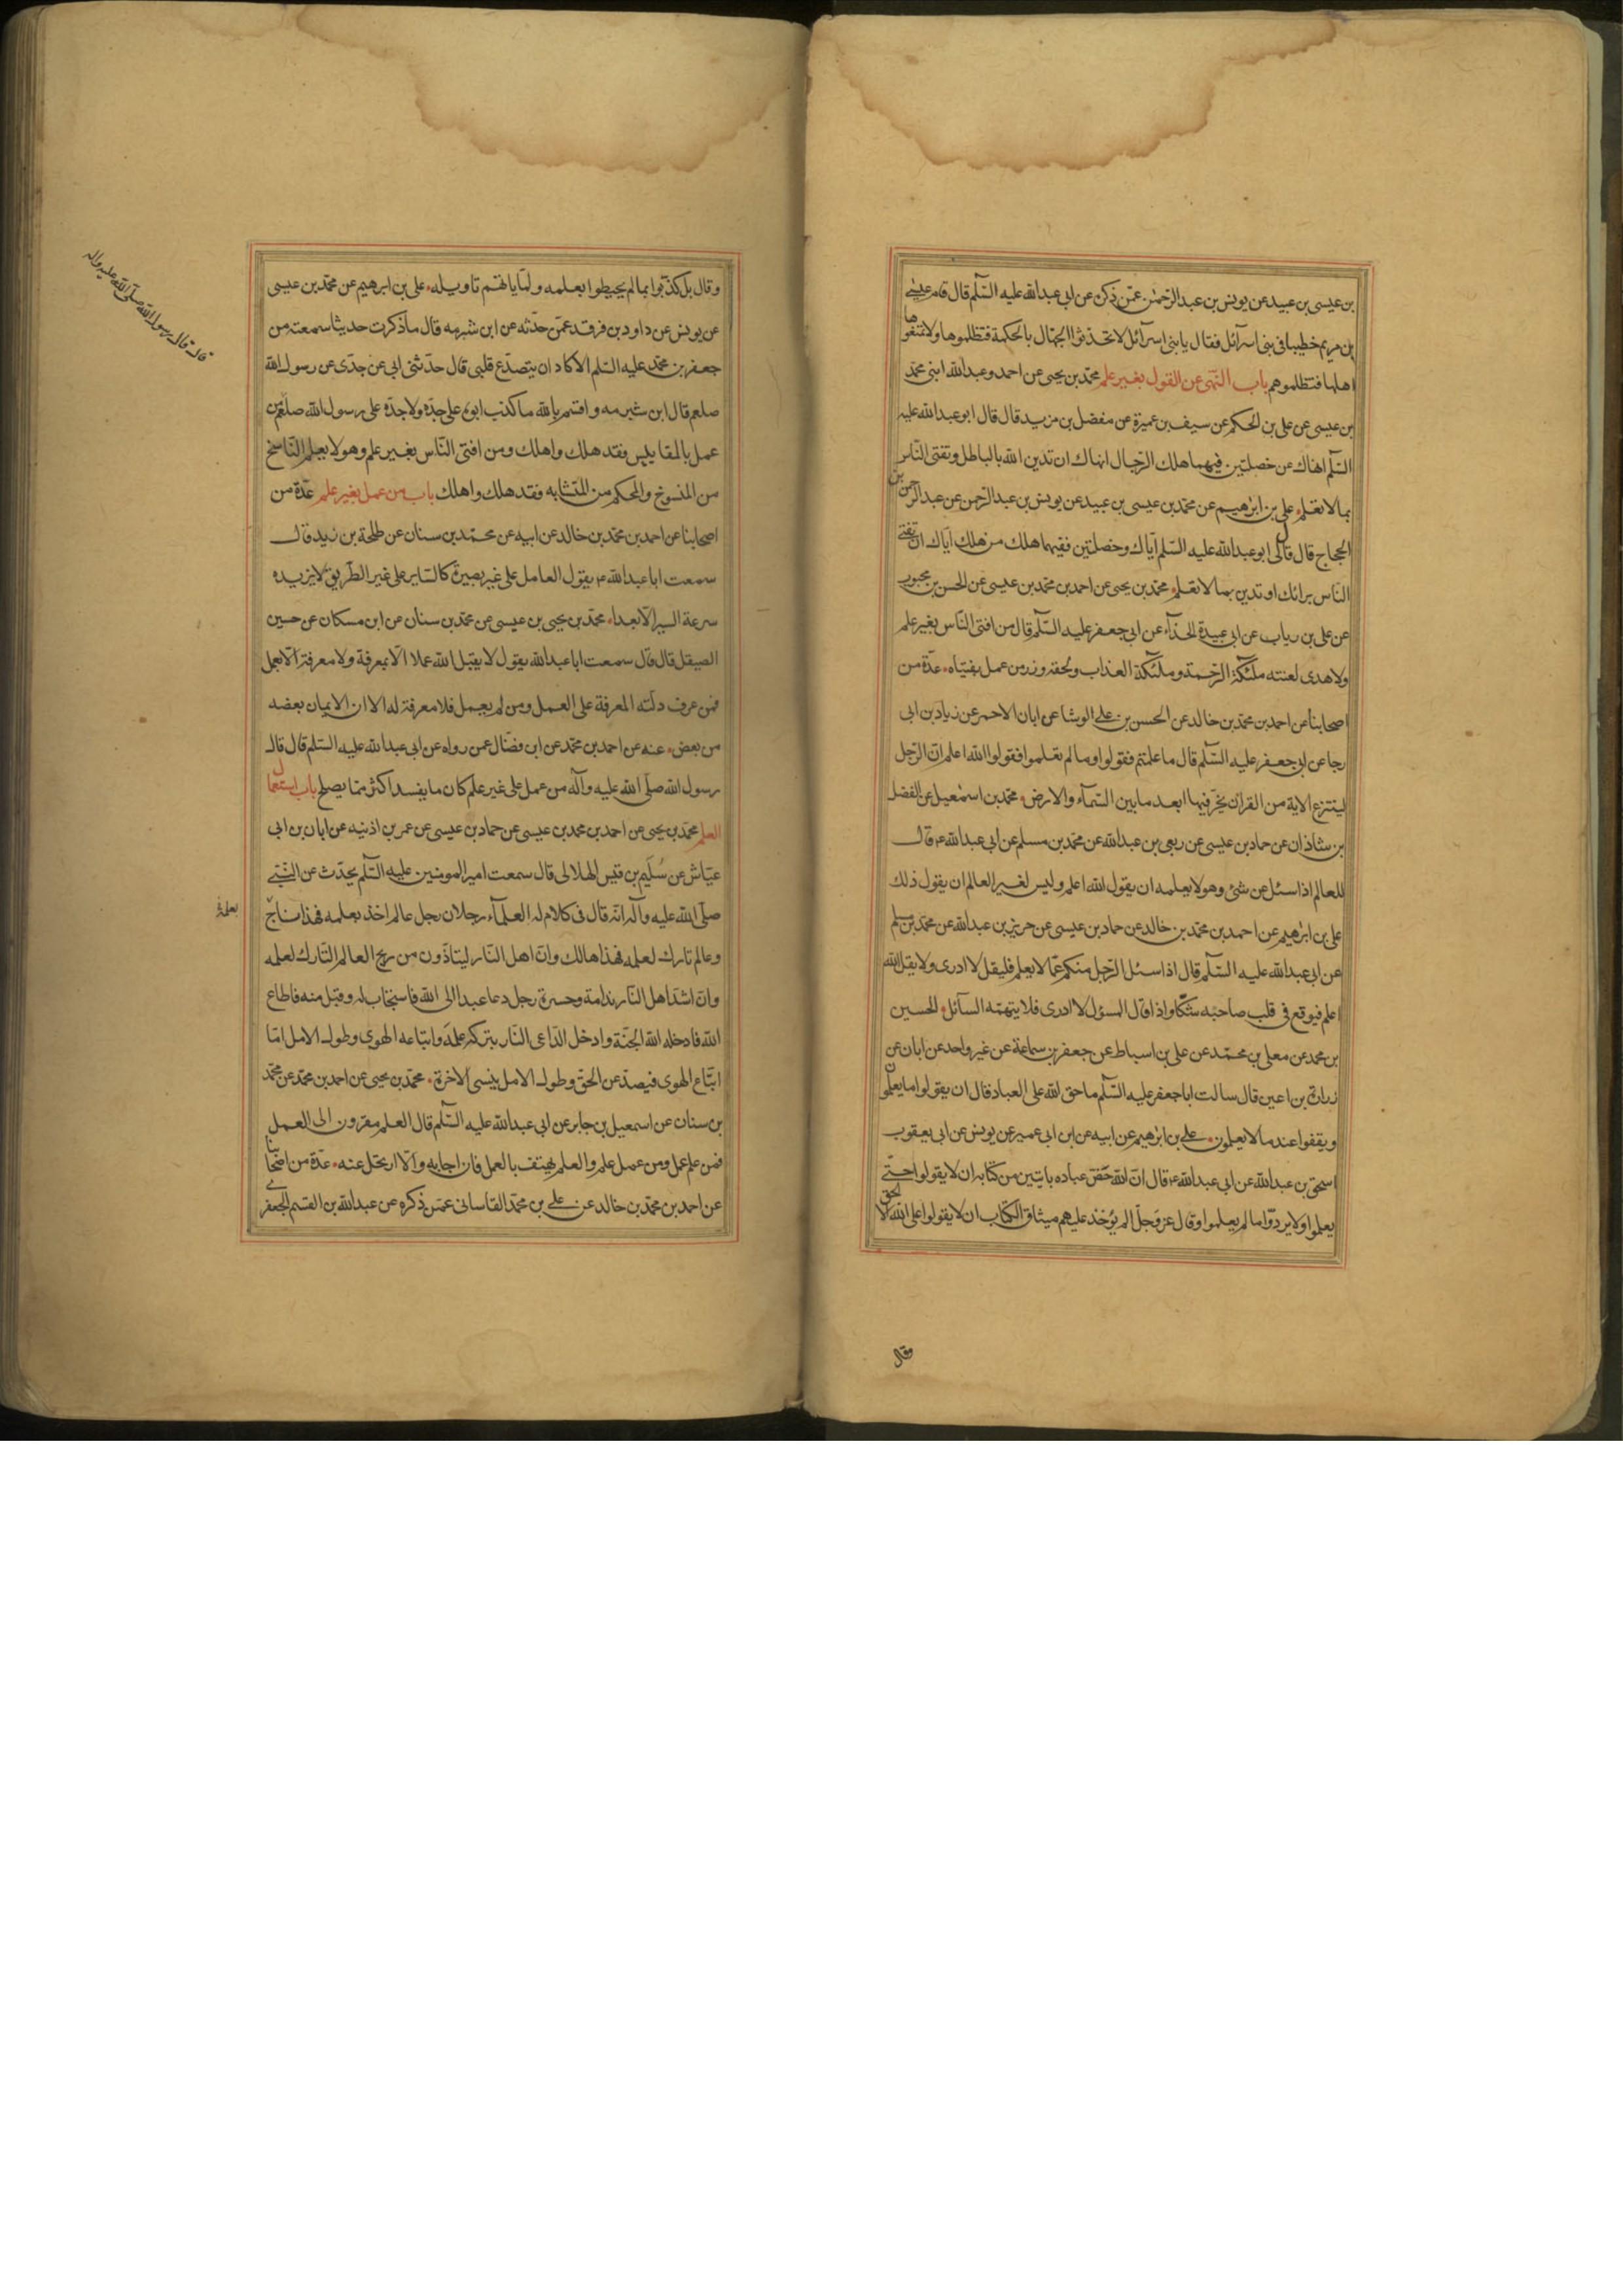 بن عيسى بن عبيد عن يونس بن عبد الرّحمن عمّن ذكره عن ابى عبد الله عليه السّلم قال قام عيسى
بن مريم خطيبا فى بنى اسرآئل فقال يا بنى اسرآئل لا تحدّثوا الجهّال بالحكمة فتظلموها ولا تمنعوها
اهلها فتظلموهم باب النّهى عن القول بغير علم محمّد بن يحيى عن احمد وعبد الله ابنى محمّد
بن عيسى عن على بن الحكم عن سيف بن عميرة عن مفضل بن مزيد قال قال ابو عبد الله عليه
السّلم انهاك عن خصلتين فيهما هلك الرّجال انهاك ان تدين الله بالباطل وتفتى النّاس
بما لا تعلم على بن ابرهيم عن محمّد بن عيسى بن عبيد عن يونس بن عبد الرّحمن عن عبد الرّحمن بن
الحجاج قال قال لى ابو عبد الله عليه السّلم ايّاك وخصلتين ففيهما هلك من هلك ايّاك ان تفتى
النّاس برائك او تدين بما لا تعلم محمّد بن يحيى عن احمد بن محمّد بن عيسى عن الحسن بن محبوب
عن على بن رياب عن ابى عبيدة الحذّآء عن ابى جعفر عليه السّلم قال من افتى النّاس بغير علم
ولا هدى لعنته ملئكة الرّحمة وملئكة العذاب ولحقه وزر من عمل بفتياه عدّة من
اصحابنا عن احمد بن محمّد بن خالد عن الحسن بن على الوشا عن ابان الاحمر عن زياد بن ابى
رجا عن ابى جعفر عليه السّلم قال ما علمتم فقولوا وما لم تعلموا فقولوا الله اعلم انّ الرّجل
لينتزع الاية من القرآن يخرّ فيها ابعد ما بين السّمآء والارض محمّد بن اسمعيل عن الفضل
بن شاذان عن حماد بن عيسى عن ربعى بن عبد الله عن محمّد بن مسلم عن ابى عبد الله ع قال
للعالم اذا سئل عن شئ وهو لا يعلمه ان يقول الله اعلم وليس لغير العالم ان يقول ذلك
على بن ابرهيم عن احمد بن محمّد بن خالد عن حماد بن عيسى عن حريز بن عبد الله عن محمّد بن مسلم
عن ابى عبد الله عليه السّلم قال اذا سئل الرّجل منكم عمّا لا يعلم فليقل لا ادرى ولا يقل الله
اعلم فيوقع فى قلب صاحبه شكّا واذا قال المسؤل لا ادرى فلا يتهمّه السآئل الحسين
بن محمد عن معلى بن محمّد عن على بن اسباط عن جعفر بن سماعة عن غير واحد عن ابان عن
زرارة بن اعين قال سالت ابا جعفر عليه السّلم ما حق الله على العباد قال ان يقولوا ما يعلمون
ويقفوا عند ما لا يعلمون على بن ابرهيم عن ابيه عن ابن ابى عمير عن يونس عن ابى يعقوب
اسحق بن عبد الله عن ابى عبد الله ع قال انّ الله خصّ عباده بايتين من كتابه ان لا يقولوا حتّى
يعلموا ولا يردّوا ما لم يعلموا وقال عزّ وجلّ الم يؤخذ عليهم ميثاق الكتاب ان لا يقولوا على الله الا الحق
وقال
وقال بل كذّبوا بما لم يحيطوا بعلمه ولمّا ياتهم تاويله على بن ابرهيم عن محمّد بن عيسى
عن يونس عن داود بن فرقد عمّن حدّثه عن ابن شبرمه قال ما ذكرت حديثا سمعته من
جعفر بن محمّد عليه السّلم الا كاد ان يتصدّع قلبى قال حدّثنى ابى عن جدّى عن رسول الله
صلعم قال ابن شبرمه واقسم بالله ما كذب ابوه على جدّه ولا جدّه على رسول الله صلعم من
عمل بالمقاييس فقد هلك واهلك ومن افتى النّاس بغير علم وهو لا يعلم النّاسخ
من المنسوخ والمحكم من المتشابه فقد هلك واهلك باب من عمل بغير علم عدّة من
اصحابنا عن احمد بن محمّد بن خالد عن ابيه عن محمّد بن سنان عن طلحة بن زيد قال
سمعت ابا عبد الله ع يقول العامل على غير بصيرة كالسّاير على غير الطّريق لا يزيده
سرعة السير الّا بعدا محمّد بن يحيى بن عيسى عن محمّد بن سنان عن ابن مسكان عن حسين
الصيقل قال قال سمعت ابا عبد الله يقول لا يقبل الله عملا الّا بمعرفة ولا معرفة الّا بعمل
فمن عرف دلّته المعرفة على العمل ومن لم يعمل فلا معرفة له الا ان الايمان بعضه
من بعض عنه عن احمد بن محمّد عن ابن فضّال عمن رواه عن ابى عبد الله عليه السّلم قال قال
رسول الله صلّى الله عليه وآله من عمل على غير علم كان ما يفسد اكثر ممّا يصلح باب استعمال
العلم محمّد بن يحيى عن احمد بن محمد بن عيسى عن حماد بن عيسى عن عمر بن اذنيه عن ابان بن ابى
عيّاش عن سُليم بن قيس الهلالى قال سمعت امير المومنين عليه السّلم يحدّث عن النّبى
صلّى الله عليه وآله انّه قال فى كلام له العلمآء رجلان رجل عالم اخذ بعلمه فهذا ناجٍ
وعالم تارك لعلمه فهذا هالك وانّ اهل النّار ليتاذّون من ريح العالم التّارك لعلمه
وانّ اشدّ اهل النّار ندامة وحسرة رجل دعا عبدا الى الله فاستجاب له وقبل منه فاطاع
الله فادخله الله الجنّة وادخل الدّاعى النّار بتركه علمه واتباعه الهوى وطول الامل امّا
اتّباع الهوى فيصدّ عن الحق وطول الامل ينسى الاخرة محمّد بن يحيى عن احمد بن محمّد عن محمّد
بن سنان عن اسمعيل بن جابر عن ابى عبد الله عليه السّلم قال العلم مقرون الى العمل
فمن علم عمل ومن عمل علم والعلم يهتف بالعمل فان اجابه والّا ارتحل عنه عدّة من اصحابنا
عن احمد بن محمّد بن خالد عن على بن محمّد القاسانى عمّن ذكره عن عبد الله بن القسم الجعفرى
قال قال رسول الله صلّى الله عليه واله